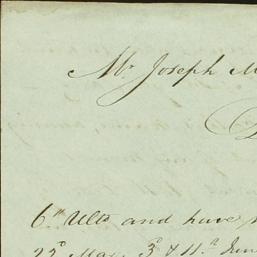 Mr. Joseph M
D
6th Ulto and have
22d May, 3d & 11th June